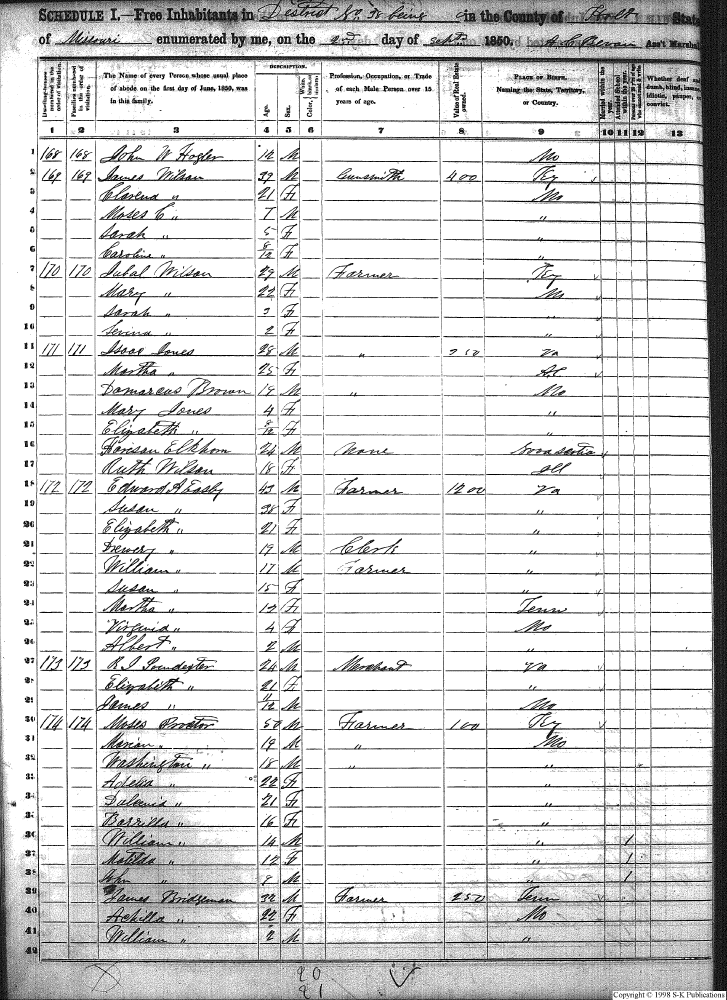 SCHEDULE I.—Free Inhabitants in District No 38 being in the County of Holt State
of Missouri enumerated by me, on the 2nd day of Sept 1850. Ass't Marshal
DESCRIPTION.
Dwelling-houses numbered in the order of visitation.
Families numbered in the order of visitation.
The Name of every Person whose usual place of abode on the first day of June, 1850, was in this family.
Age.
Sex.
Color, White, black, or mulatto.
Profession, Occupation, or Trade of each Male Person over 15 years of age.
Value of Real Estate owned.
PLACE OF BIRTH. Naming the State, Territory, or Country.
Married within the year.
Attended School within the year.
Whether deaf and dumb, blind, insane, idiotic, pauper, or convict.
1 2 3 4 5 6 7 8 9 10 11 12 13
1 168 168 John W Hogler 12 M Mo
2 169 169 James Wilson 39 M Gunsmith 400 Ky
3 Clarend " 21 F Mo
4 Moses C " 7 M "
5 Sarah " 5 F "
6 Caroline " 8/12 F "
7 170 170 Jubal Wilson 29 M Farmer Ky
8 Mary " 22 F Mo
9 Sarah " 3 F "
10 " 2 F "
11 171 171 Isaac Jones 28 M " Va
12 Martha " 25 F
13 Damarcus Brown 19 M " Mo
14 Mary Jones 4 F "
15 Elizabeth " 8/12 F "
16 Harison Elkhorn 24 M None Nova Scotia
17 Ruth Wilson 18 F Ill
18 172 172 Edward A Easby 43 M Farmer 1200 Va
19 Susan " 38 F "
20 Elizabeth " 21 F "
21 Drewery " 19 M Clerk "
22 William " 17 M Farmer "
23 Susan " 15 F "
24 Martha " 12 F Tenn
25 Virginia " 4 F Mo
26 Albert " 2 M "
27 173 173 R. I. Poindexter 24 M Merchant Va
28 Elizabeth " 21 F "
29 James " 11/12 M Mo
30 174 174 Moses Proctor 50 M Farmer 100 Ky
31 Marian " 19 M " Mo
32 Washington " 18 M " "
33 Adelia " 22 F "
34 " 21 F "
35 Barrilla " 16 F "
36 William " 14 M " 1
37 Matilda " 12 F " 1
38 John " 9 M " 1
39 James Bridgeman 32 M Farmer 250 Tenn
40 Achilla " 22 F Mo
41 William " 2 M "
42
20
21
Copyright © 1998 S-K Publications